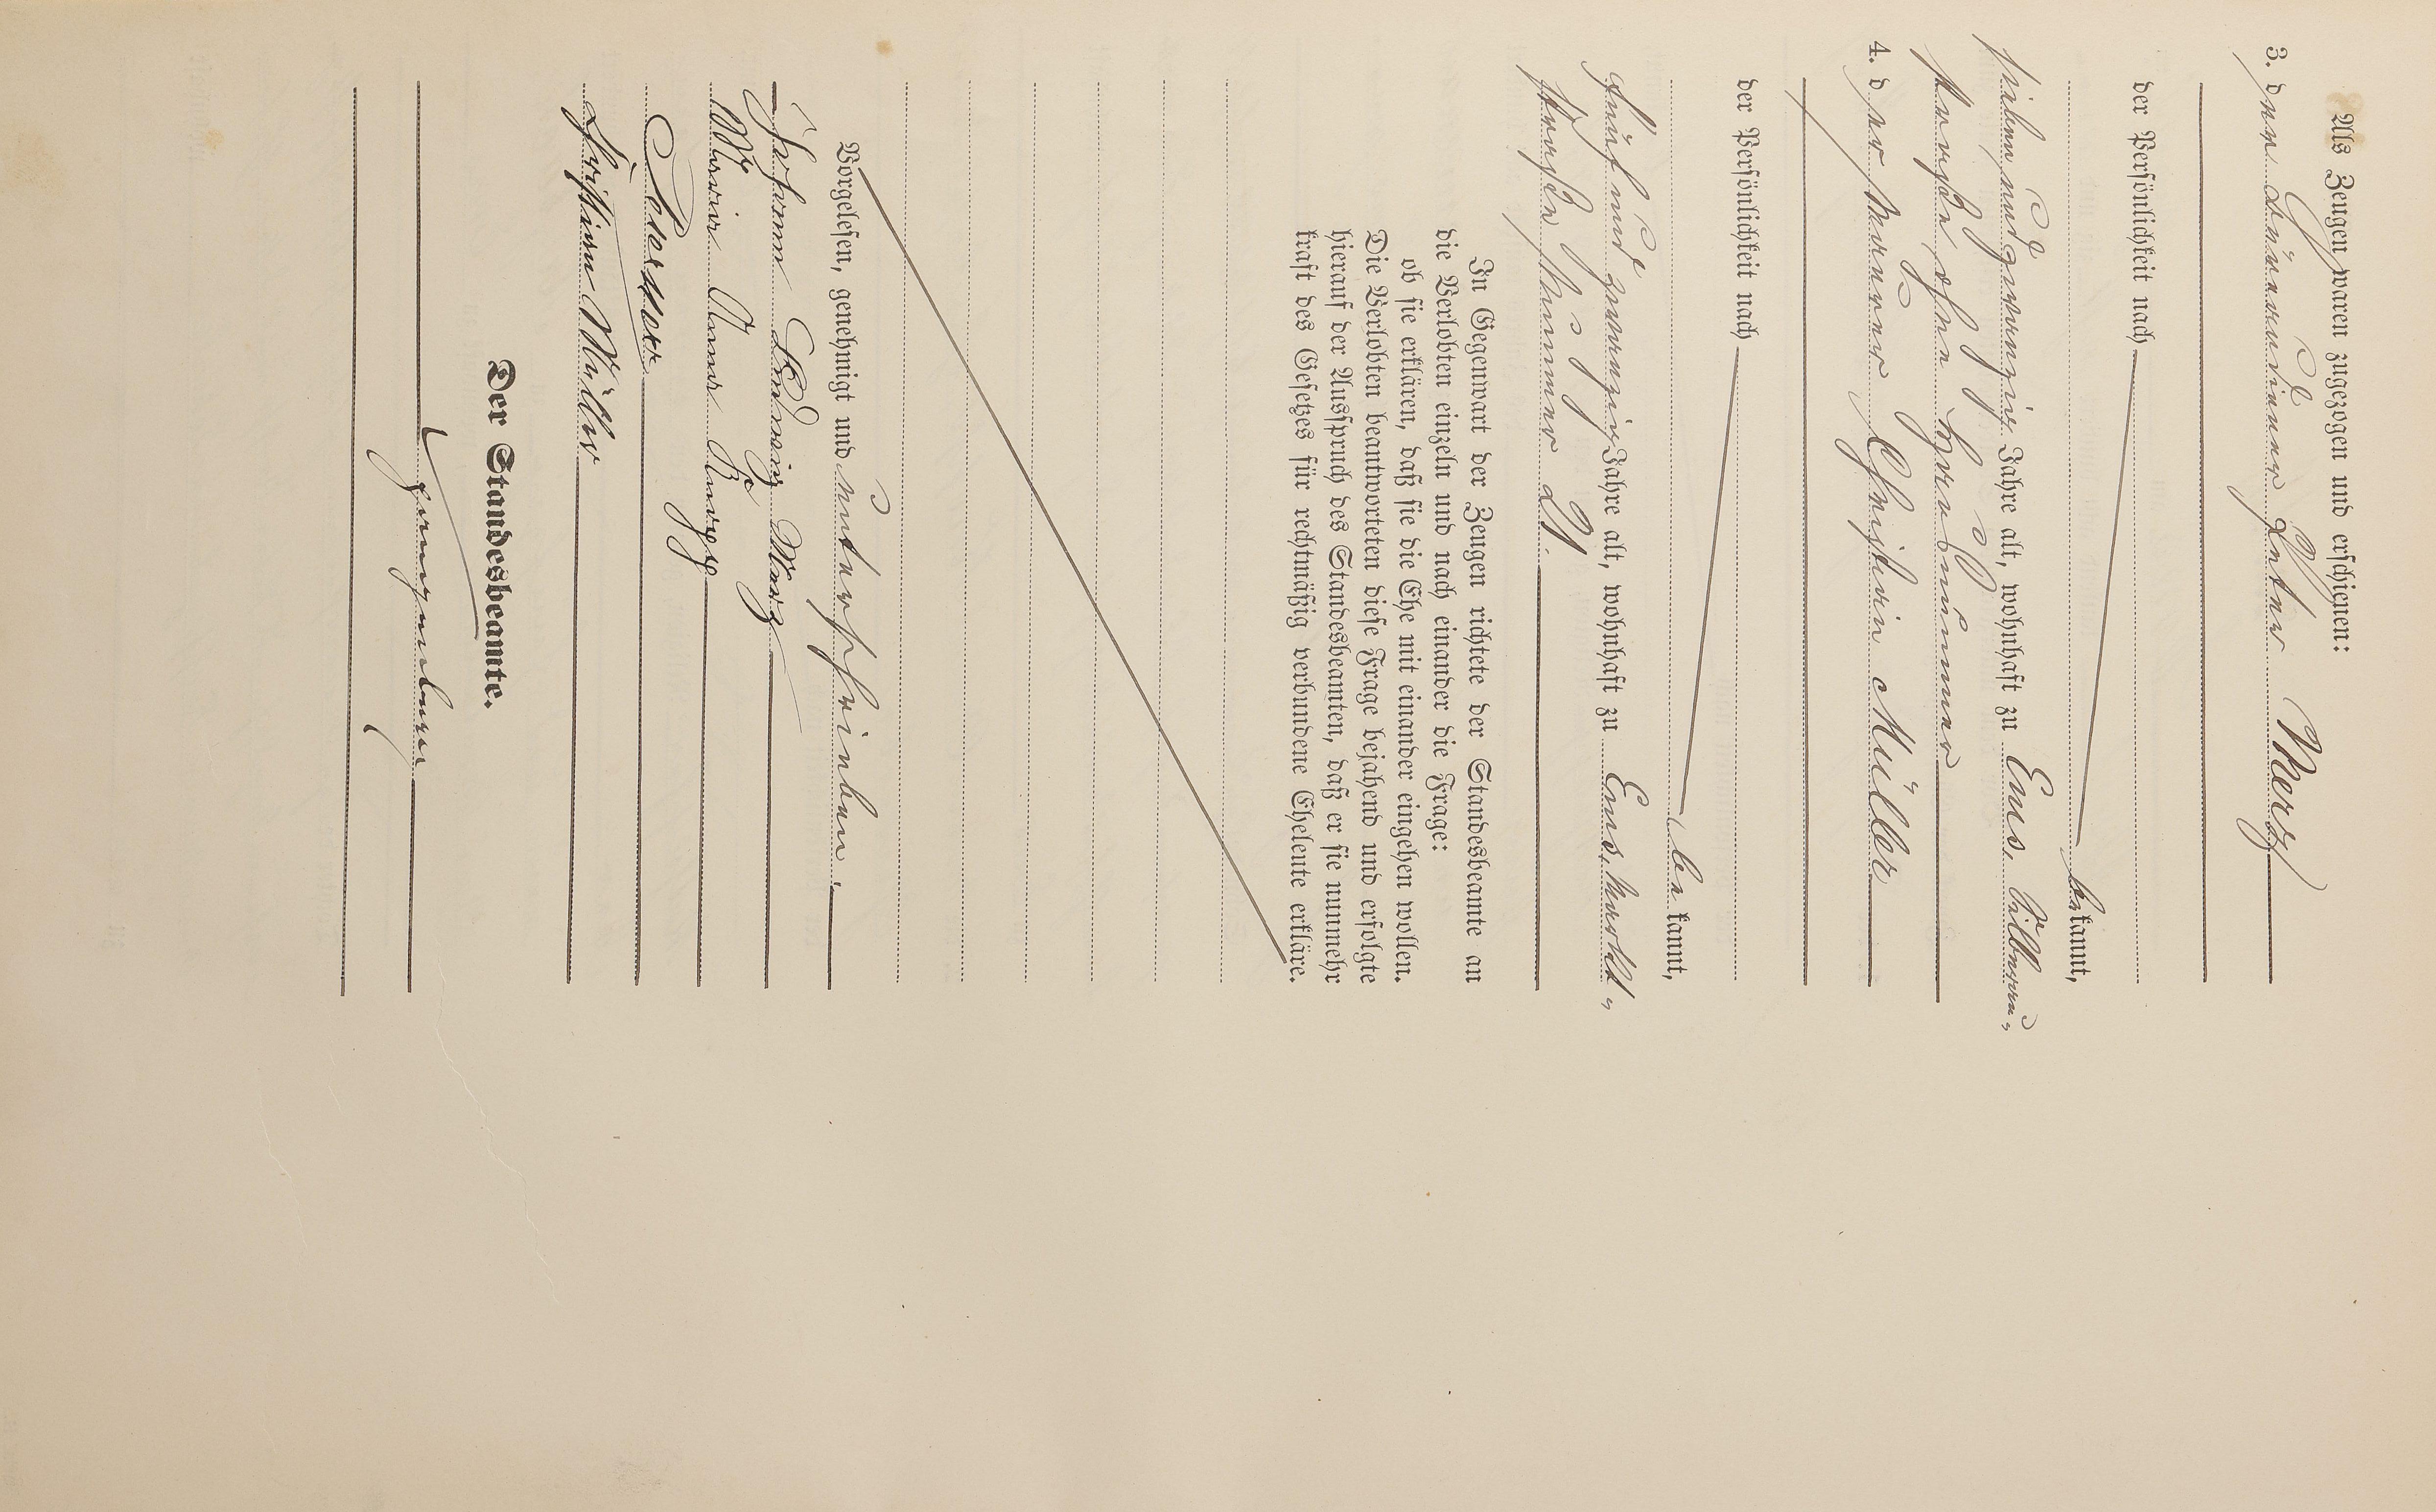 Als Zeugen waren zugezogen und erschienen:
3. der Peter Merz
der Persönlichkeit nach
be kannt,
sieben und zwanzig Jahre alt, wohnhaft zu Ems,
straße ohne Hausnummer
4. der Maurer Christian Müller
der Persönlichkeit nach
be kannt,
fünf und zwanzig Jahre alt, wohnhaft zu Ems, Markt-
straße Nummer 21.
In Gegenwart der Zeugen richtete der Standesbeamte an
die Verlobten einzeln und nach einander die Frage:
ob sie erklären, daß sie die Ehe mit einander eingehen wollen.
Die Verlobten beantworteten diese Frage bejahend und erfolgte
hierauf der Ausspruch des Standesbeamten, daß er sie nunmehr
kraft des Gesetzes für rechtmäßig verbundene Eheleute erkläre.
Vorgelesen, genehmigt und unterschrieben.
Ludwig Merz
Maria Anna
Peter Merz
Christian Müller
Der Standesbeamte.